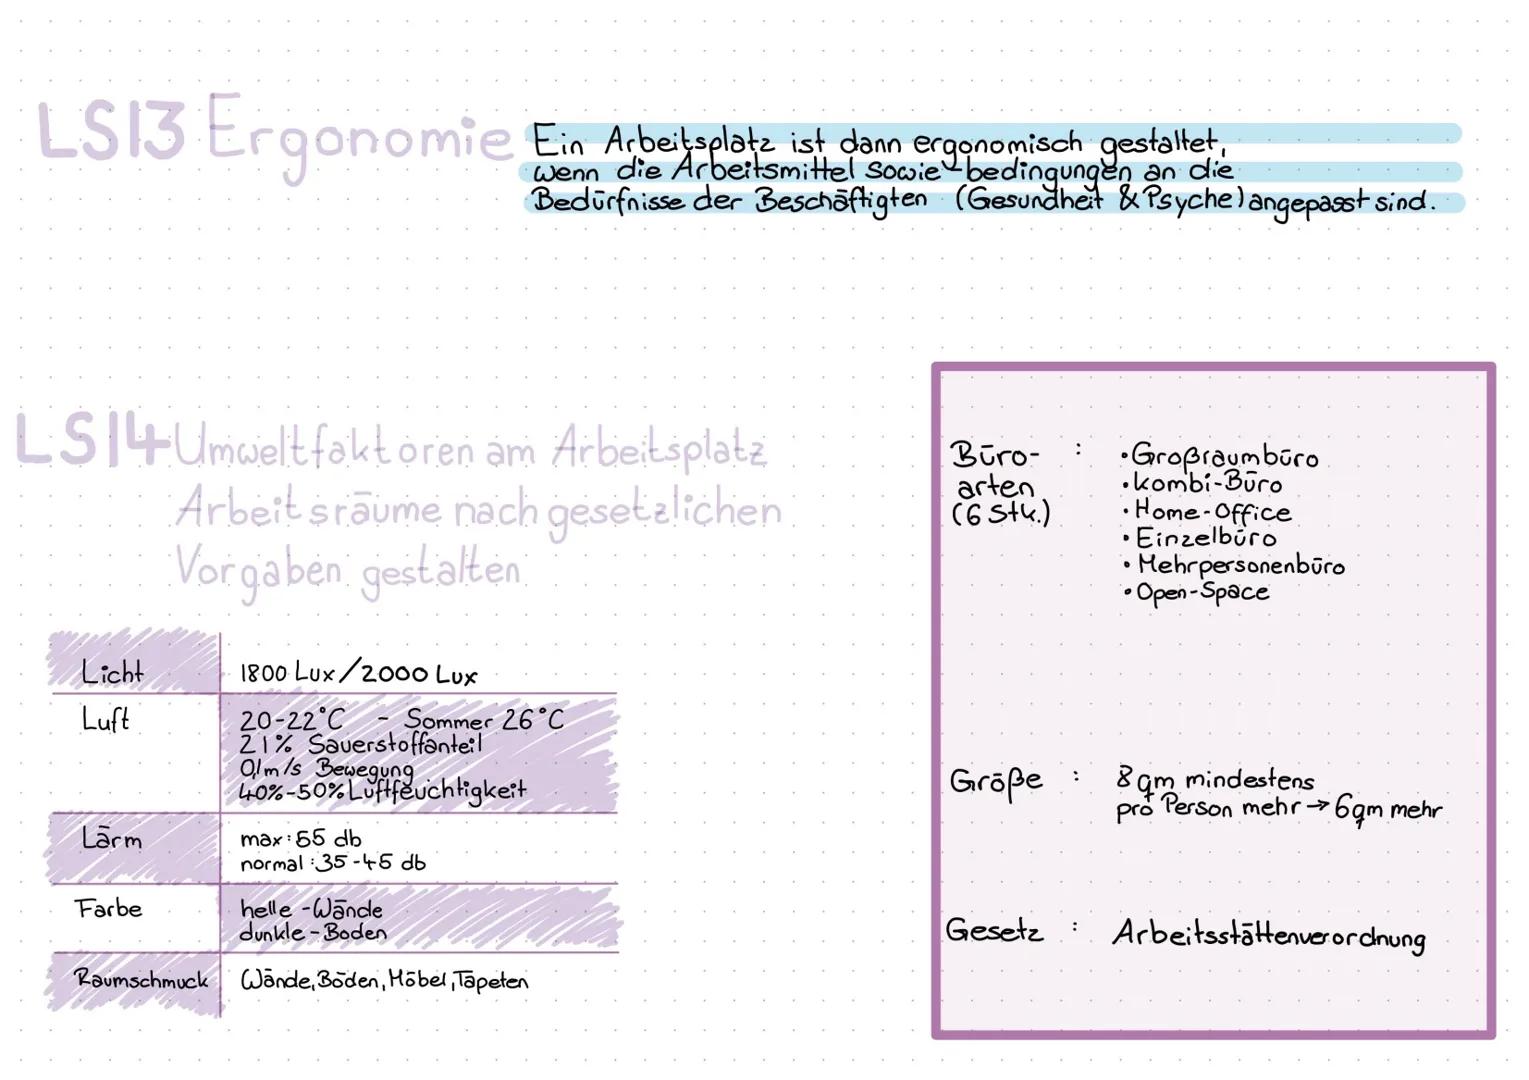 LS13 Ergonomie
Ein Arbeitsplatz ist dann ergonomisch gestaltet,
wenn die Arbeitsmittel sowie -bedingungen an die
Bedürfnisse der Beschäftigten (Gesundheit & Psyche) angepasst sind.
LS14 Umweltfaktoren am Arbeitsplatz
Arbeitsräume nach gesetzlichen
Vorgaben gestalten
Licht
1800 Lux/2000 Lux
Luft
20-22°C - Sommer 26°C
21% Sauerstoffanteil
0,1m/s Bewegung
40%-50% Luftfeuchtigkeit
Lärm
max: 55 db
normal: 35-45 db
Farbe
helle -Wände
dunkle -Boden
Raumschmuck
Wände, Böden, Möbel, Tapeten
Büro- :
arten
(6 Stk.)
•Großraumbüro
•Kombi-Büro
•Home-Office
•Einzelbüro
•Mehrpersonenbüro
•Open-Space
Größe : 8qm mindestens
pro Person mehr → 6qm mehr
Gesetz : Arbeitsstättenverordnung